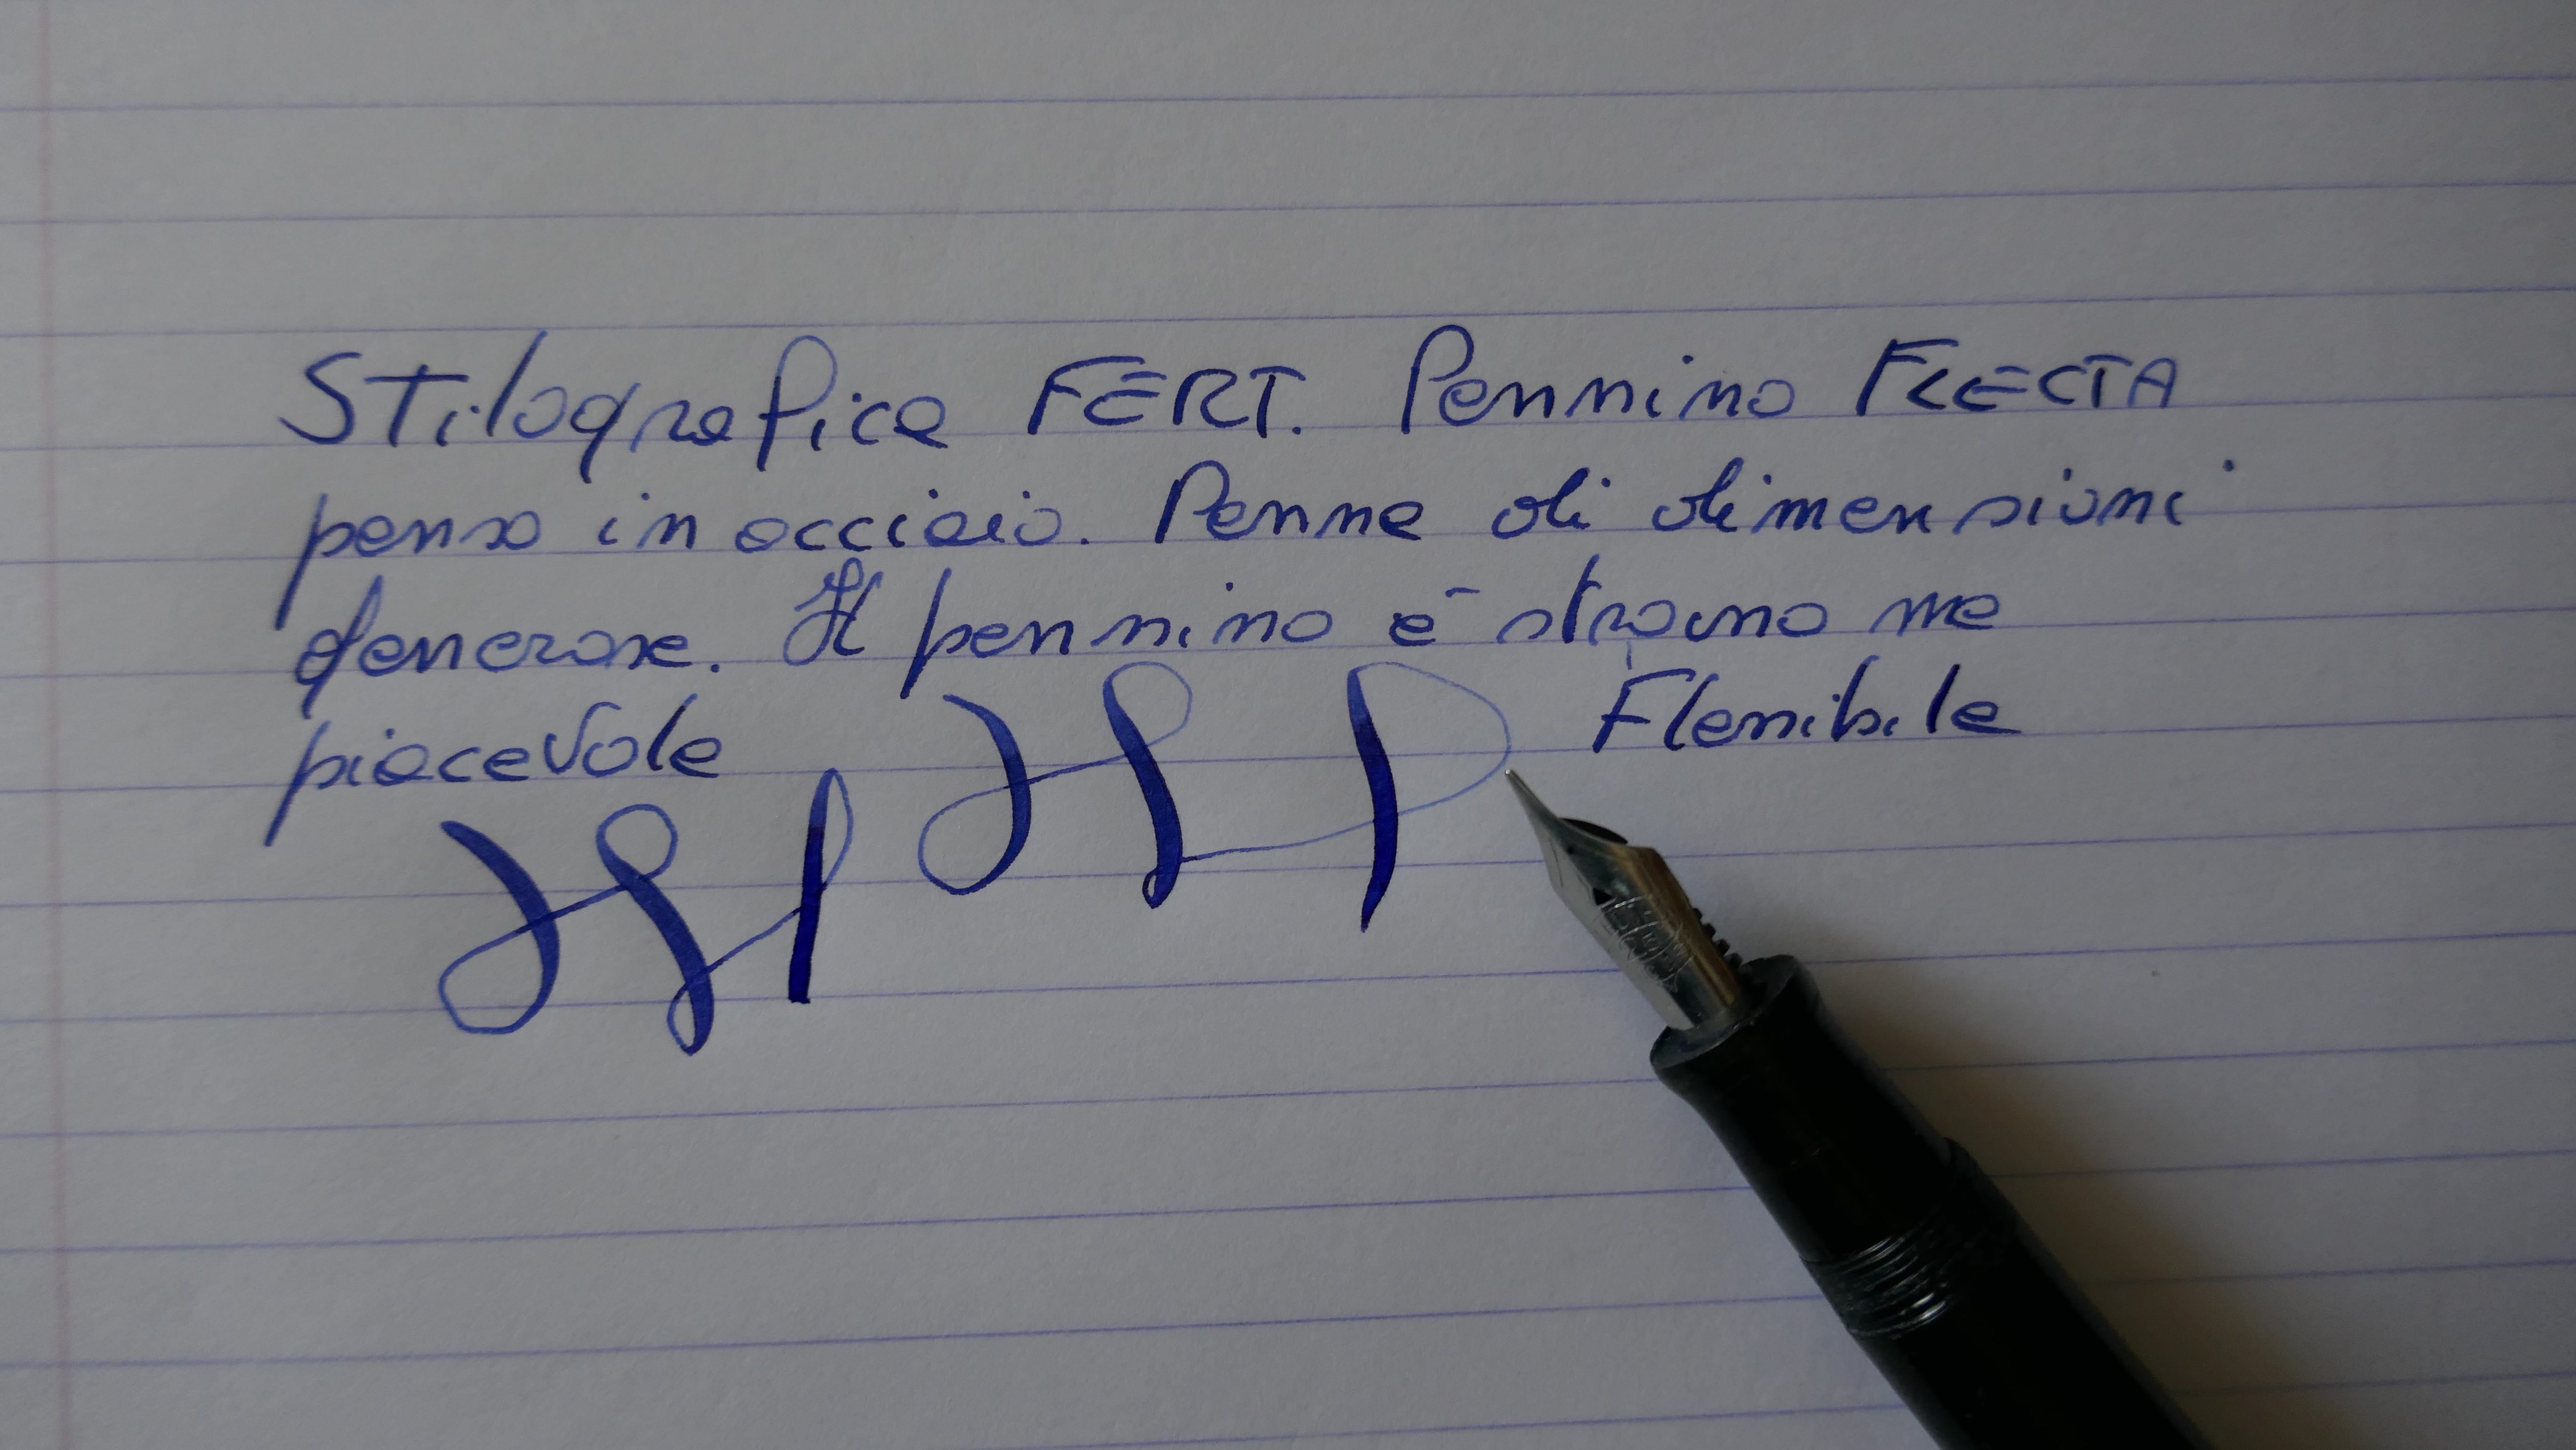 Stilografica FERT. Pennino FLECTA
penso in acciaio. Penna di dimensioni
generose. Il pennino è strano ma
piacevole Flessibile